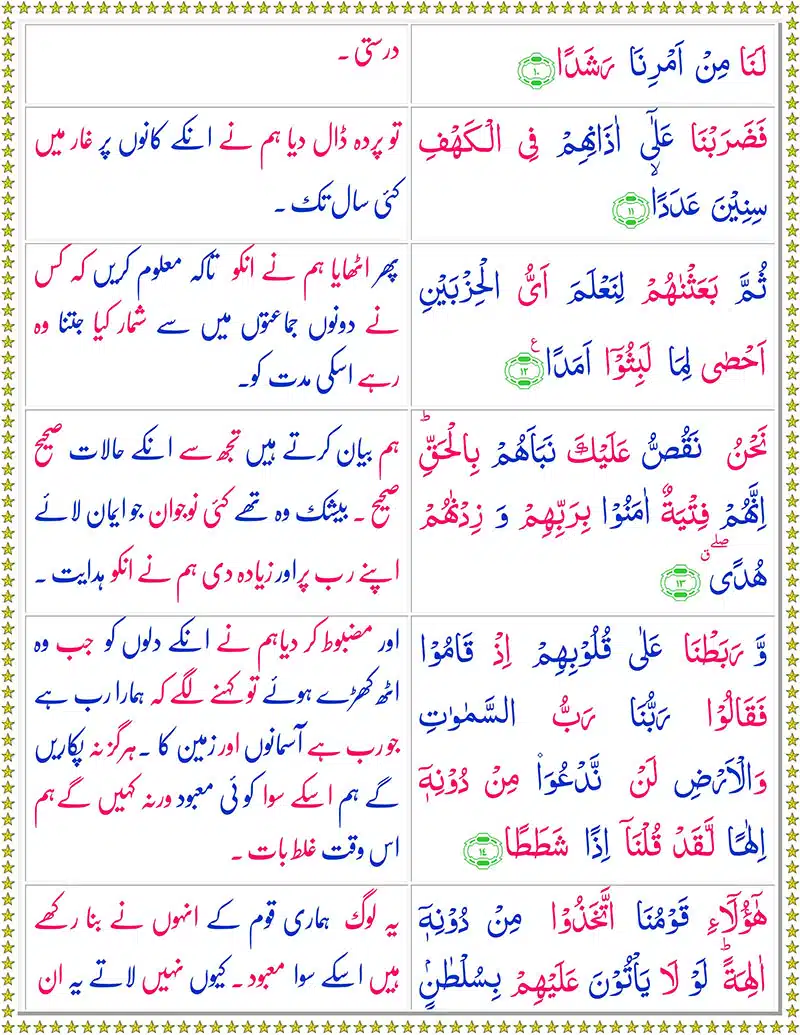 لَنَا مِنْ اَمْرِنَا رَشَدًا ۱۰
درستی ۔
فَضَرَبْنَا عَلٰٓى اٰذَانِهِمْ فِى الْكَهْفِ
سِنِيْنَ عَدَدًاۙ ۱۱
تو پردہ ڈال دیا ہم نے انکے کانوں پر غار میں
کئی سال تک ۔
ثُمَّ بَعَثْنٰهُمْ لِنَعْلَمَ اَىُّ الْحِزْبَيْنِ
اَحْصٰى لِمَا لَبِثُوْۤا اَمَدًا ۱۲ ع
پھر اٹھایا ہم نے انکو تاکہ معلوم کریں کہ کس
نے دونوں جماعتوں میں سے شمار کیا جتنا وہ
رہے اسکی مدت کو۔
نَحْنُ نَقُصُّ عَلَيْكَ نَبَاَهُمْ بِالْحَقِّؕ
اِنَّهُمْ فِتْيَةٌ اٰمَنُوْا بِرَبِّهِمْ وَ زِدْنٰهُمْ
هُدًى ۖ ق ۱۳
ہم بیان کرتے ہیں تجھ سے انکے حالات صحیح
صحیح ۔ بیشک وہ تھے کئی نوجوان جو ایمان لائے
اپنے رب پر اور زیادہ دی ہم نے انکو ہدایت ۔
وَّ رَبَطْنَا عَلٰى قُلُوْبِهِمْ اِذْ قَامُوْا
فَقَالُوْا رَبُّنَا رَبُّ السَّمٰوٰتِ
وَالْاَرْضِ لَنْ نَّدْعُوَا۠ مِنْ دُوْنِهٖۤ
اِلٰهًا لَّقَدْ قُلْنَاۤ اِذًا شَطَطًا ۱٤
اور مضبوط کر دیا ہم نے انکے دلوں کو جب وہ
اٹھ کھڑے ہوئے تو کہنے لگے کہ ہمارا رب ہے
جو رب ہے آسمانوں اور زمین کا ۔ ہرگز نہ پکاریں
گے ہم اسکے سوا کوئی معبود ورنہ کہیں گے ہم
اس وقت غلط بات ۔
هٰٓؤُلَاۤءِ قَوْمُنَا اتَّخَذُوْا مِنْ دُوْنِهٖۤ
اٰلِهَةً ؕ لَوْ لَا يَاْتُوْنَ عَلَيْهِمْ بِسُلْطٰنٍۭ
یہ لوگ ہماری قوم کے انہوں نے بنا رکھے
ہیں اسکے سوا معبود ۔ کیوں نہیں لاتے یہ ان